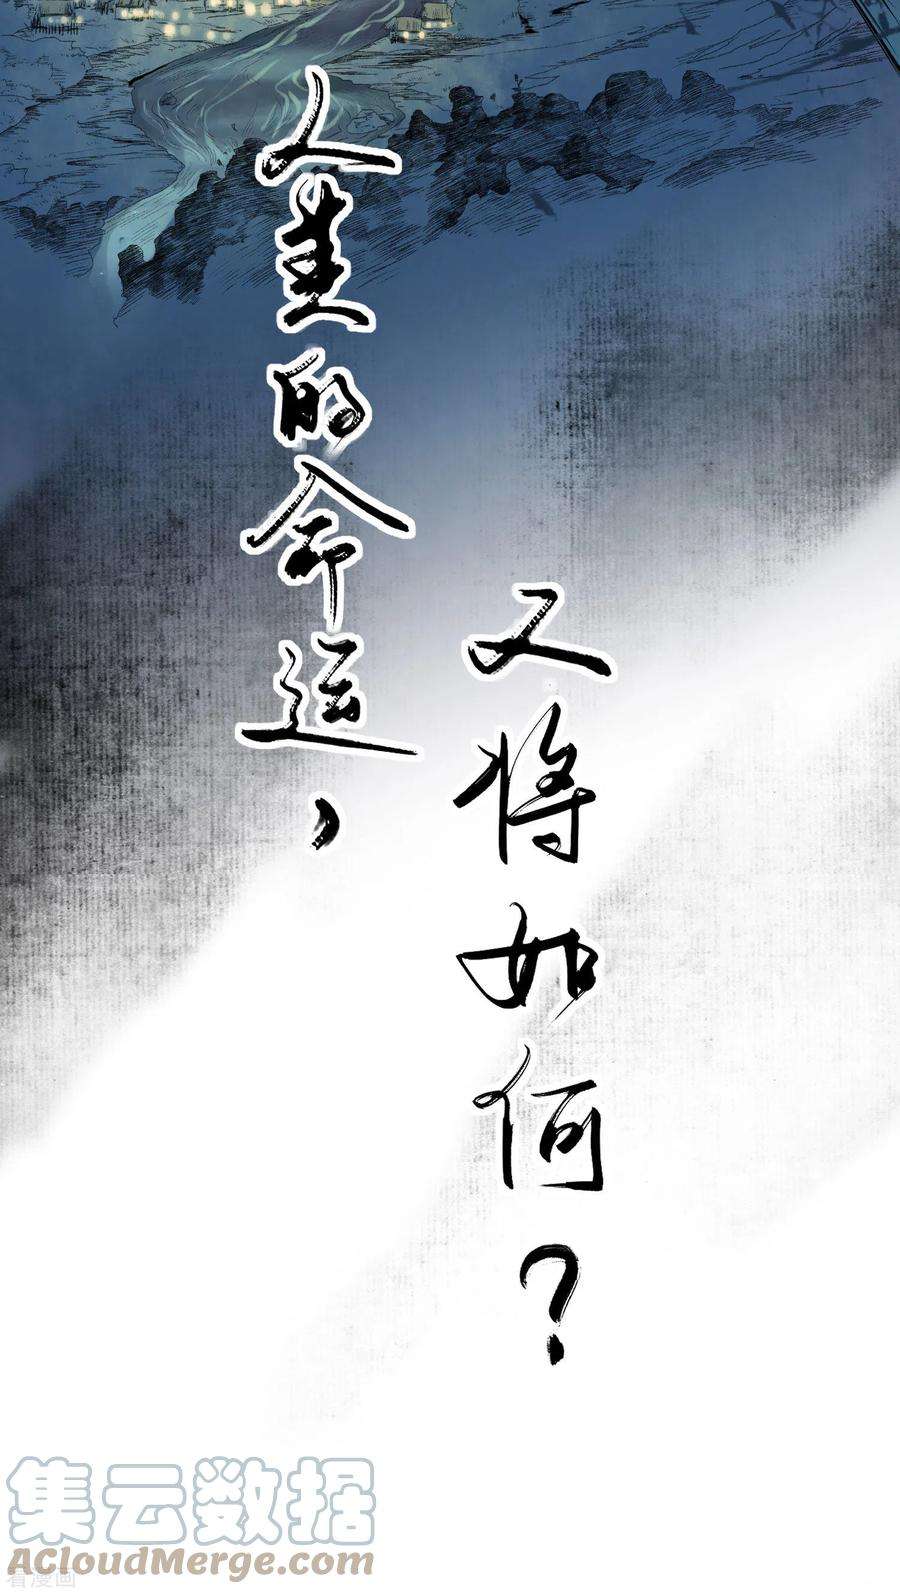 人生的命运，
又将如何？
集云数据
ACloudMerge.com
看漫画